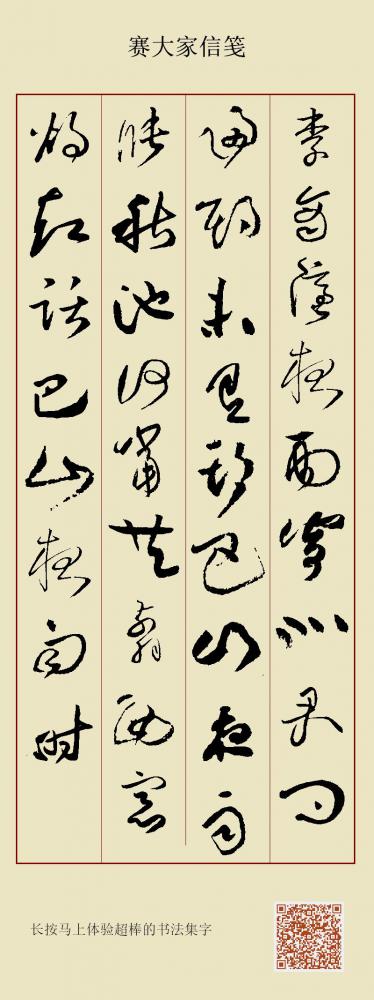 赛大家信笺
李商隐夜雨寄北君问
归期未有期巴山夜雨
涨秋池何当共剪西窗
烛却话巴山夜雨时
长按马上体验超棒的书法集字